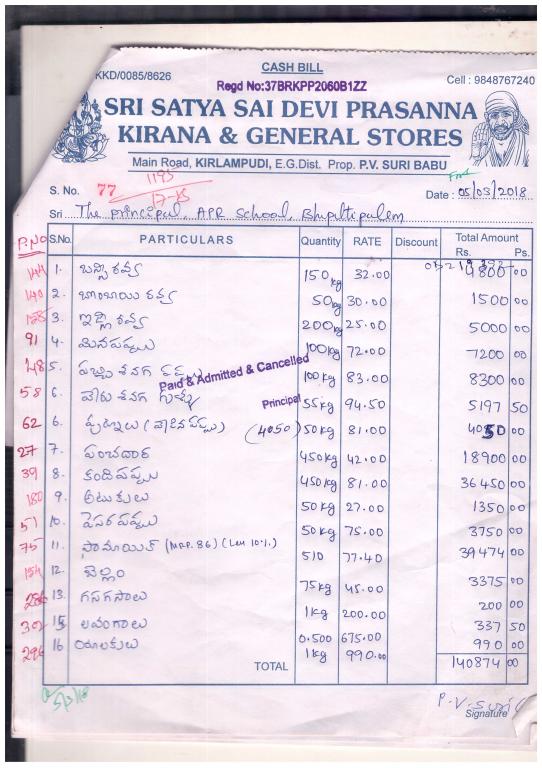 CASH BILL
KKD/0085/8626
Regd No:37BRKPP2060B1ZZ
Cell : 9848767240
SRI SATYA SAI DEVI PRASANNA
KIRANA & GENERAL STORES
Main Road, KIRLAMPUDI, E.G.Dist. Prop. P.V. SURI BABU
S. No. 77 1195
17-18
Date : 05/03/2018
Sri The principal, APR School, Bhupathipalem
P.NO S.No. PARTICULARS Quantity RATE Discount Total Amount
Rs. Ps.
144 1. బన్సిరవ్వ 150kg 32.00 4800 00
140 2. బొంబాయి రవ్వ 50kg 30.00 1500 00
128 3. ఇడ్లీ రవ్వ 200kg 25.00 5000 00
91 4. మినపప్పు 100kg 72.00 7200 00
48 5. పచ్చి శెనగ పప్పు 100kg 83.00 8300 00
Paid & Admitted & Cancelled
Principal
58 6. శెనగ 55kg 94.50 5197 50
62 6. (4050) 50kg 81.00 4050 00
27 7. పంచదార 450kg 42.00 18900 00
39 8. కందిపప్పు 450kg 81.00 36450 00
180 9. అటుకులు 50kg 27.00 1350 00
51 10. పెసరపప్పు 50kg 75.00 3750 00
75 11. (MRP. 86) (Less 10%) 510 77.40 39474 00
154 12. బెల్లం 75kg 45.00 3375 00
13. గసగసాలు 1kg 200.00 200 00
302 15 లవంగాలు 0.500 675.00 337 50
296 16 యాలకులు 1kg 990.00 990 00
TOTAL 140874 00
5/3/18
P.V.Suri
Signature